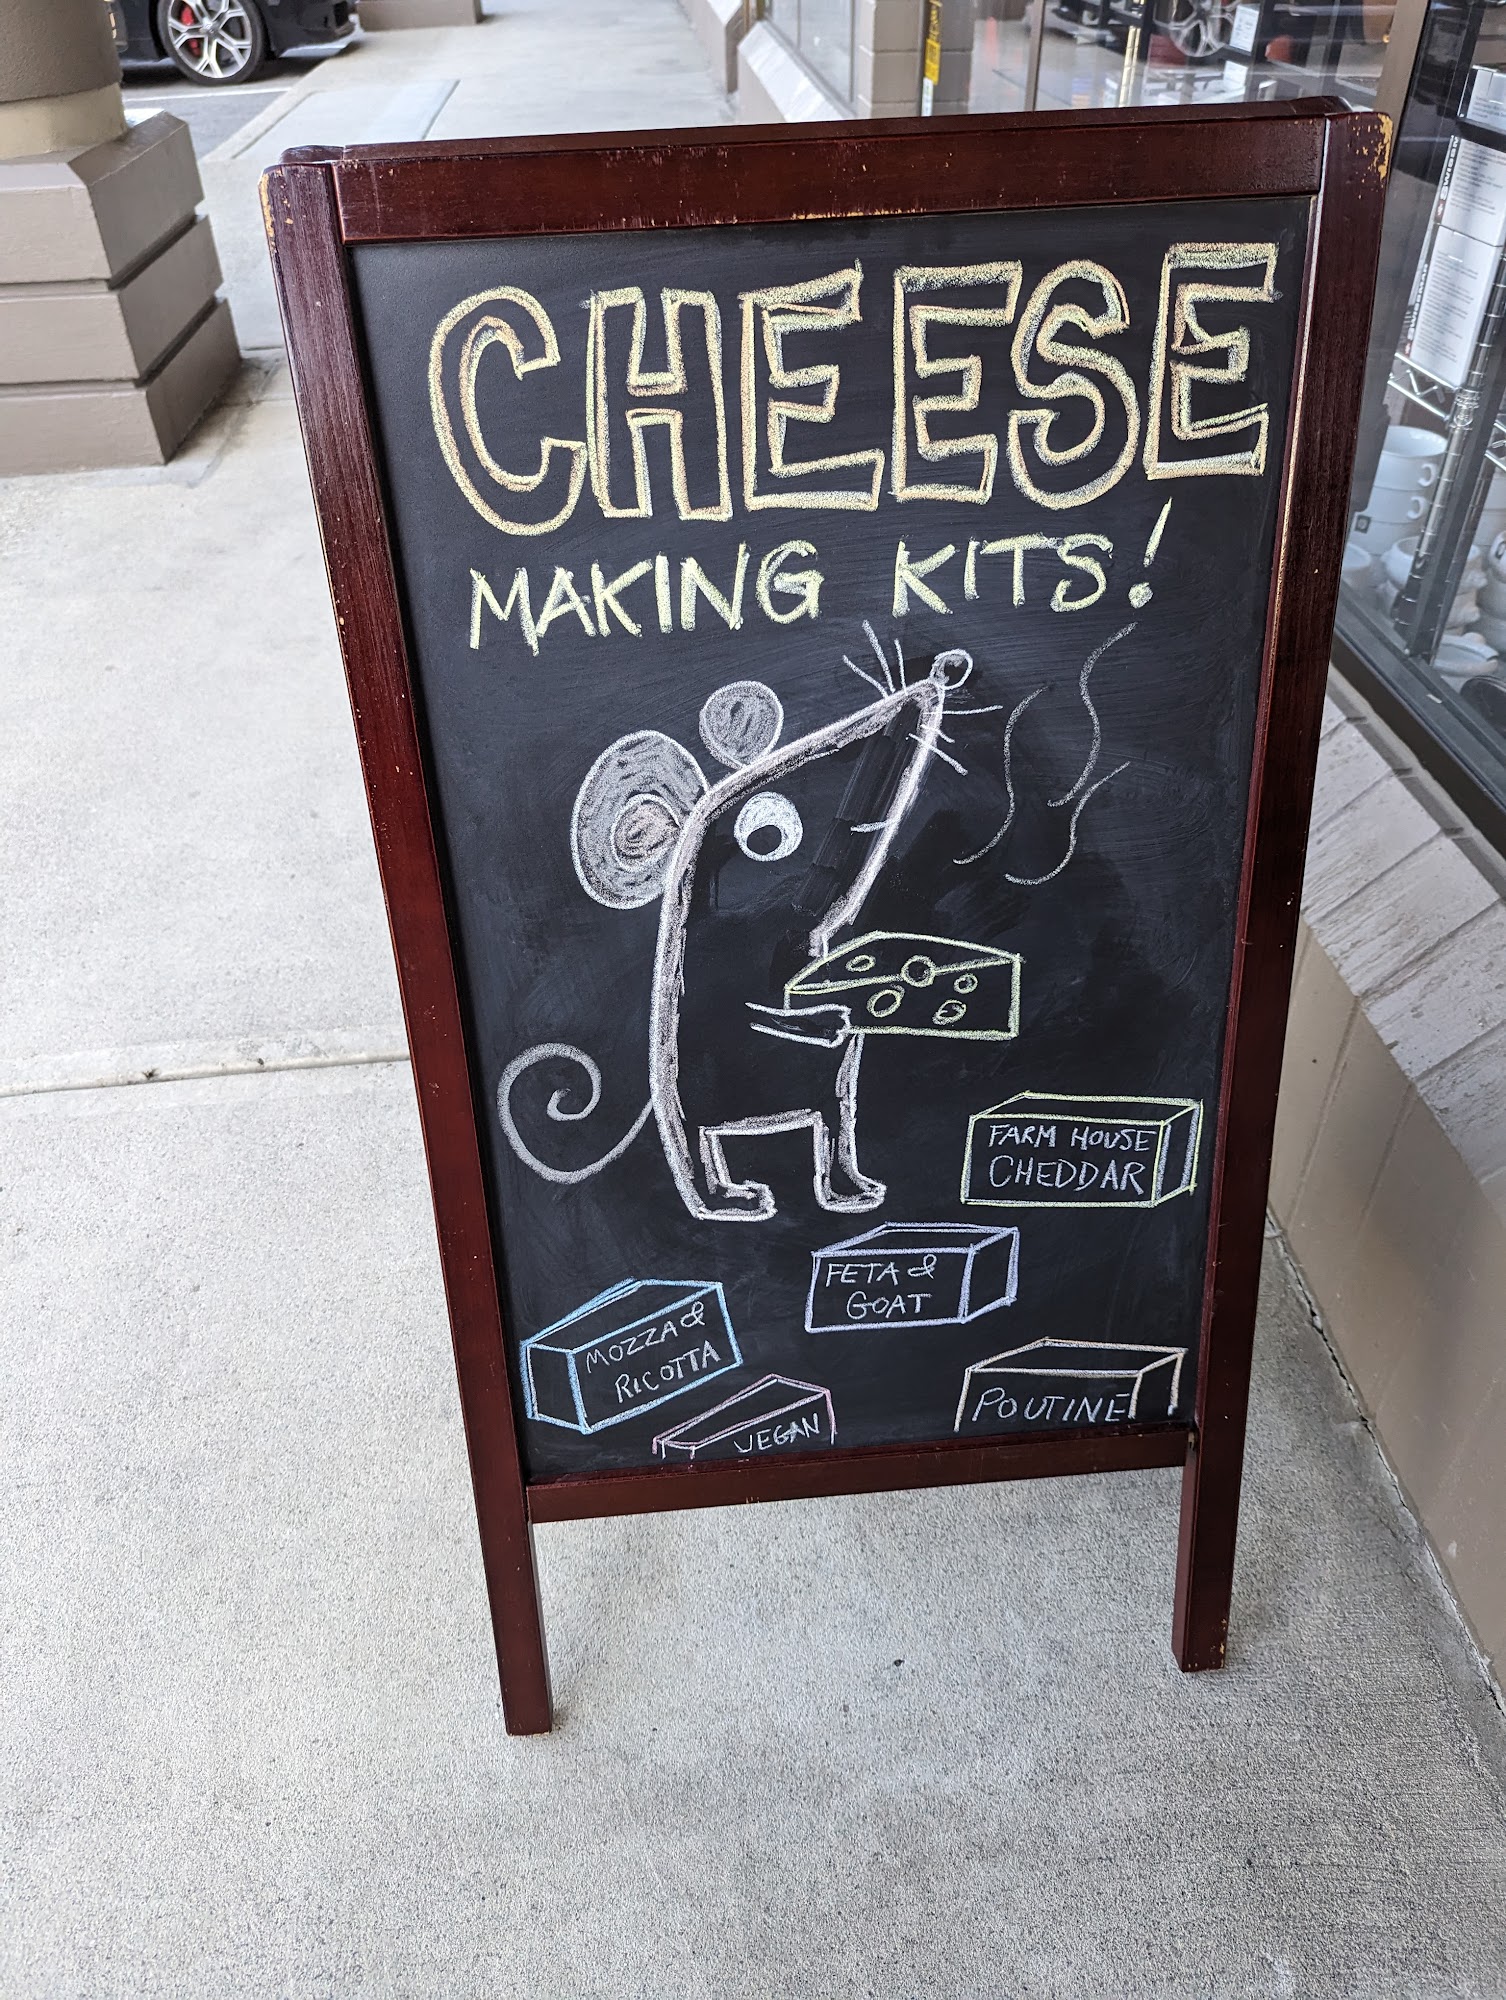 CHEESE
MAKING KITS!
FARM HOUSE
CHEDDAR
FETA &
GOAT
MOZZA &
RICOTTA
POUTINE
VEGAN